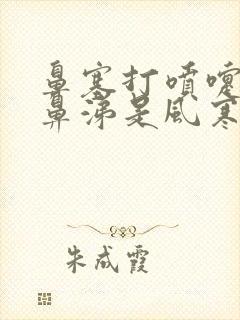 鼻塞打喷嚏
鼻涕是风寒
朱成霞